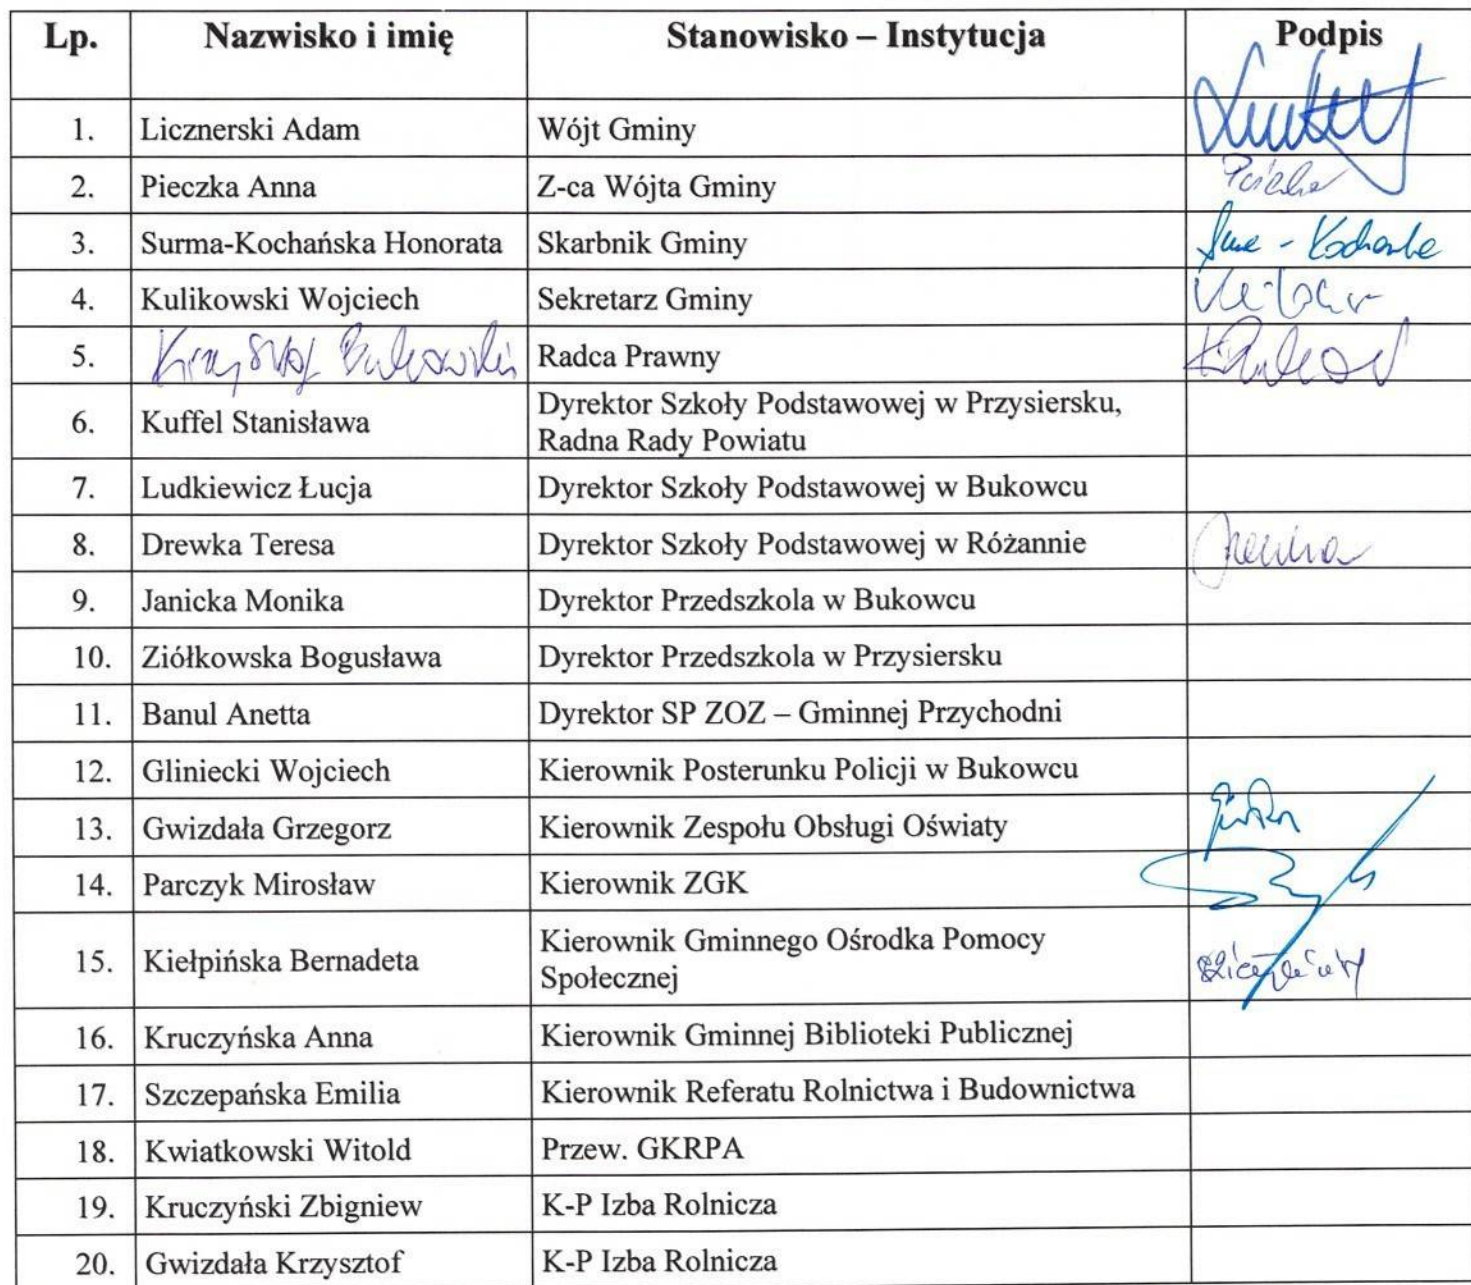 Lp. Nazwisko i imię Stanowisko – Instytucja Podpis
1. Licznerski Adam Wójt Gminy
2. Pieczka Anna Z-ca Wójta Gminy
3. Surma-Kochańska Honorata Skarbnik Gminy
4. Kulikowski Wojciech Sekretarz Gminy
5. Krzysztof Radca Prawny
6. Kuffel Stanisława Dyrektor Szkoły Podstawowej w Przysiersku,
Radna Rady Powiatu
7. Ludkiewicz Łucja Dyrektor Szkoły Podstawowej w Bukowcu
8. Drewka Teresa Dyrektor Szkoły Podstawowej w Różannie
9. Janicka Monika Dyrektor Przedszkola w Bukowcu
10. Ziółkowska Bogusława Dyrektor Przedszkola w Przysiersku
11. Banul Anetta Dyrektor SP ZOZ – Gminnej Przychodni
12. Gliniecki Wojciech Kierownik Posterunku Policji w Bukowcu
13. Gwizdała Grzegorz Kierownik Zespołu Obsługi Oświaty
14. Parczyk Mirosław Kierownik ZGK
15. Kiełpińska Bernadeta Kierownik Gminnego Ośrodka Pomocy
Społecznej
16. Kruczyńska Anna Kierownik Gminnej Biblioteki Publicznej
17. Szczepańska Emilia Kierownik Referatu Rolnictwa i Budownictwa
18. Kwiatkowski Witold Przew. GKRPA
19. Kruczyński Zbigniew K-P Izba Rolnicza
20. Gwizdała Krzysztof K-P Izba Rolnicza